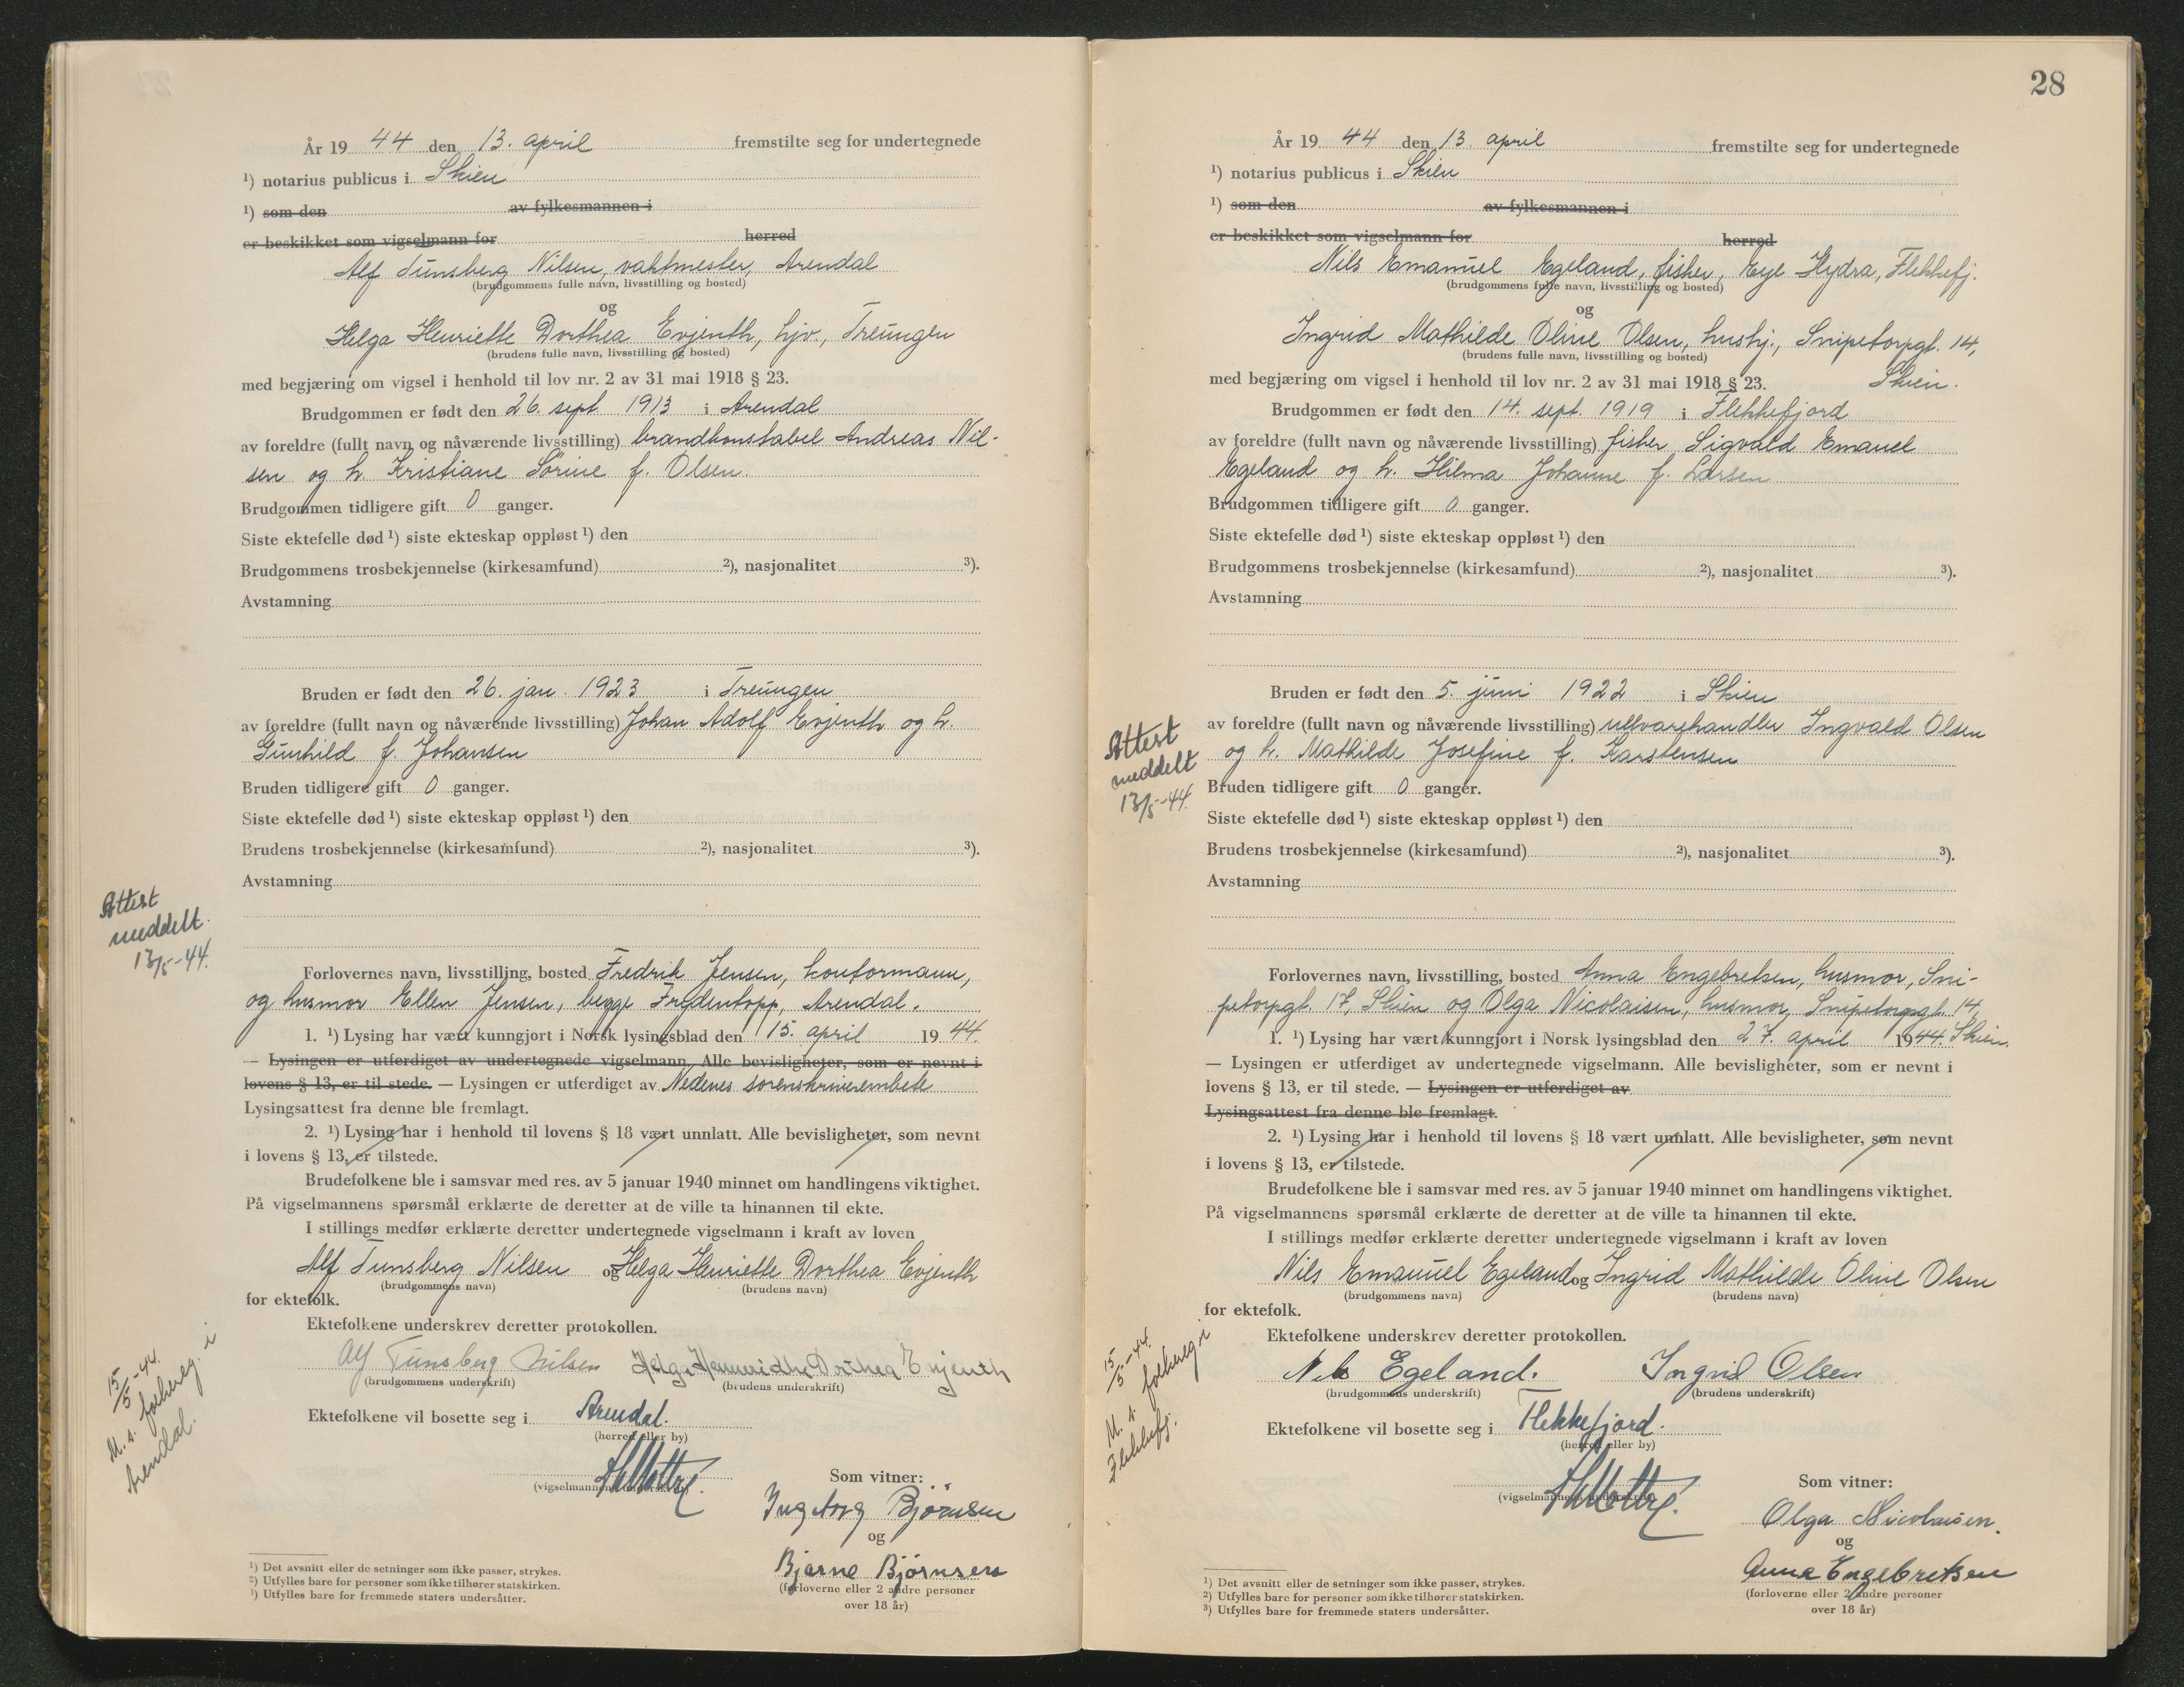 År 19 44 den 13. april fremstilte seg for undertegnede
¹) notarius publicus i Skien
¹) som den av fylkesmannen i
er beskikket som vigselmann for herred
Alf Tunsberg Nilsen, vaktmester, Arendal
(brudgommens fulle navn, livsstilling og bosted)
og
Helga Henriette Dorthea Evjenth, hjv., Treungen
(brudens fulle navn, livsstilling og bosted)
med begjæring om vigsel i henhold til lov nr. 2 av 31 mai 1918 § 23.
Brudgommen er født den 26. sept. 1913 i Arendal
av foreldre (fullt navn og nåværende livsstilling) brandkonstabel Andreas Nil-
sen og h. Kristiane Sørine f. Olsen.
Brudgommen tidligere gift 0 ganger.
Siste ektefelle død ¹) siste ekteskap oppløst ¹) den
Brudgommens trosbekjennelse (kirkesamfund) ²), nasjonalitet ³).
Avstamning
Bruden er født den 26. jan. 1923 i Treungen
av foreldre (fullt navn og nåværende livsstilling) Johan Adolf Evjenth og h.
Gunhild f. Johansen
Bruden tidligere gift 0 ganger.
Siste ektefelle død ¹) siste ekteskap oppløst ¹) den
Brudens trosbekjennelse (kirkesamfund) ²), nasjonalitet ³).
Avstamning
Attest
meddelt
13/5-44.
Forlovernes navn, livsstilling, bosted Fredrik Jensen, kontormann,
og husmor Ellen Jensen, begge Frydentopp, Arendal.
1. ¹) Lysing har vært kunngjort i Norsk lysingsblad den 15. april 19 44.
— Lysingen er utferdiget av undertegnede vigselmann. Alle bevisligheter, som er nevnt i
lovens § 13, er til stede. — Lysingen er utferdiget av Nedenes sorenskriverembete
Lysingsattest fra denne ble fremlagt.
2. ¹) Lysing har i henhold til lovens § 18 vært unnlatt. Alle bevisligheter, som nevnt
i lovens § 13, er tilstede.
Brudefolkene ble i samsvar med res. av 5 januar 1940 minnet om handlingens viktighet.
På vigselmannens spørsmål erklærte de deretter at de ville ta hinannen til ekte.
I stillings medfør erklærte deretter undertegnede vigselmann i kraft av loven
Alf Tunsberg Nilsen og Helga Henriette Dorthea Evjenth
(brudgommens navn) (brudens navn)
for ektefolk.
Ektefolkene underskrev deretter protokollen.
Alf Tunsberg Nilsen Helga Henneridte Dothea Evjenth
(brudgommens underskrift) (brudens underskrift)
15/5-44.
M. s. folkereg. i
Arendal.
Ektefolkene vil bosette seg i Arendal.
(herred eller by)
(vigselmannens
Som vitner:
Ingeborg Bjørnsen
og
Bjarne Bjørnsen
(forloverne eller 2 andre personer
over 18 år)
¹) Det avsnitt eller de setninger som ikke passer, strykes.
²) Utfylles bare for personer som ikke tilhører statskirken.
³) Utfylles bare for fremmede staters undersåtter.
28
År 19 44 den 13. april fremstilte seg for undertegnede
¹) notarius publicus i Skien
¹) som den av fylkesmannen i
er beskikket som vigselmann for herred
Nils Emanuel Egeland, fisker, Eye Hydra, Flekkefj.
(brudgommens fulle navn, livsstilling og bosted)
og
Ingrid Mathilde Oline Olsen, hushj., Snipetorpgt. 14,
(brudens fulle navn, livsstilling og bosted)
med begjæring om vigsel i henhold til lov nr. 2 av 31 mai 1918 § 23. Skien.
Brudgommen er født den 14. sept. 1919 i Flekkefjord
av foreldre (fullt navn og nåværende livsstilling) fisker Sigvald Emanuel
Egeland og h. Hilma Johanne f. Larsen
Brudgommen tidligere gift 0 ganger.
Siste ektefelle død ¹) siste ekteskap oppløst ¹) den
Brudgommens trosbekjennelse (kirkesamfund) ²), nasjonalitet ³).
Avstamning
Bruden er født den 5. juni 1922 i Skien
av foreldre (fullt navn og nåværende livsstilling) ullvarehandler Ingvald Olsen
og h. Mathilde Josefine f. Karstensen
Attest
meddelt
13/5-44.
Bruden tidligere gift 0 ganger.
Siste ektefelle død ¹) siste ekteskap oppløst ¹) den
Brudens trosbekjennelse (kirkesamfund) ²), nasjonalitet ³).
Avstamning
Forlovernes navn, livsstilling, bosted Anna Engebretsen, husmor, Sni-
petorpgt. 17, Skien og Olga Nicolaisen, husmor, Snipetorpgt. 14,
1. ¹) Lysing har vært kunngjort i Norsk lysingsblad den 27. april 1944. Skien.
— Lysingen er utferdiget av undertegnede vigselmann. Alle bevisligheter, som er nevnt i
lovens § 13, er til stede. — Lysingen er utferdiget av
Lysingsattest fra denne ble fremlagt.
2. ¹) Lysing har i henhold til lovens § 18 vært unnlatt. Alle bevisligheter, som nevnt
i lovens § 13, er tilstede.
Brudefolkene ble i samsvar med res. av 5 januar 1940 minnet om handlingens viktighet.
På vigselmannens spørsmål erklærte de deretter at de ville ta hinannen til ekte.
I stillings medfør erklærte deretter undertegnede vigselmann i kraft av loven
Nils Emanuel Egeland og Ingrid Mathilde Oline Olsen
(brudgommens navn) (brudens navn)
for ektefolk.
Ektefolkene underskrev deretter protokollen.
Nils Egeland. Ingrid Olsen
(brudgommens underskrift) (brudens underskrift)
15/5-44.
M. s. folkereg. i
Flekkefj.
Ektefolkene vil bosette seg i Flekkefjord.
(herred eller by)
(vigselmannens underskrift)
Som vitner:
Olga Nicolaisen.
og
Anna Engebretsen
(forloverne eller 2 andre personer
over 18 år)
¹) Det avsnitt eller de setninger som ikke passer, strykes.
²) Utfylles bare for personer som ikke tilhører statskirken.
³) Utfylles bare for fremmede staters undersåtter.